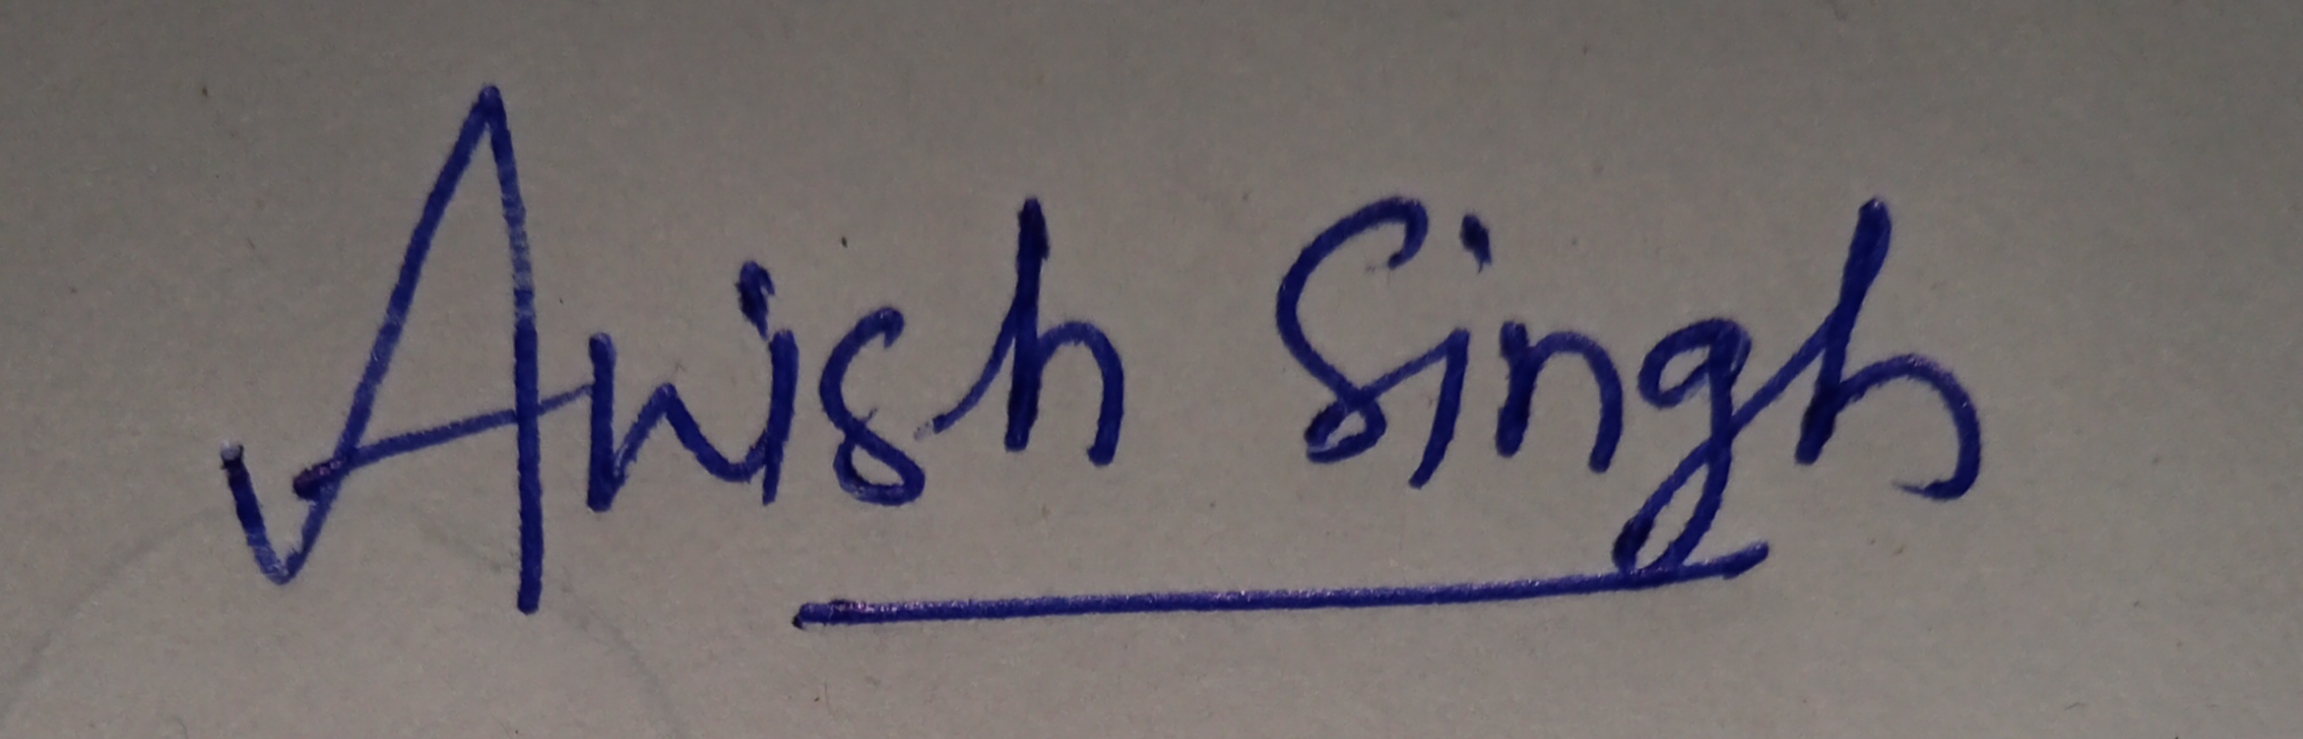 Anish Singh